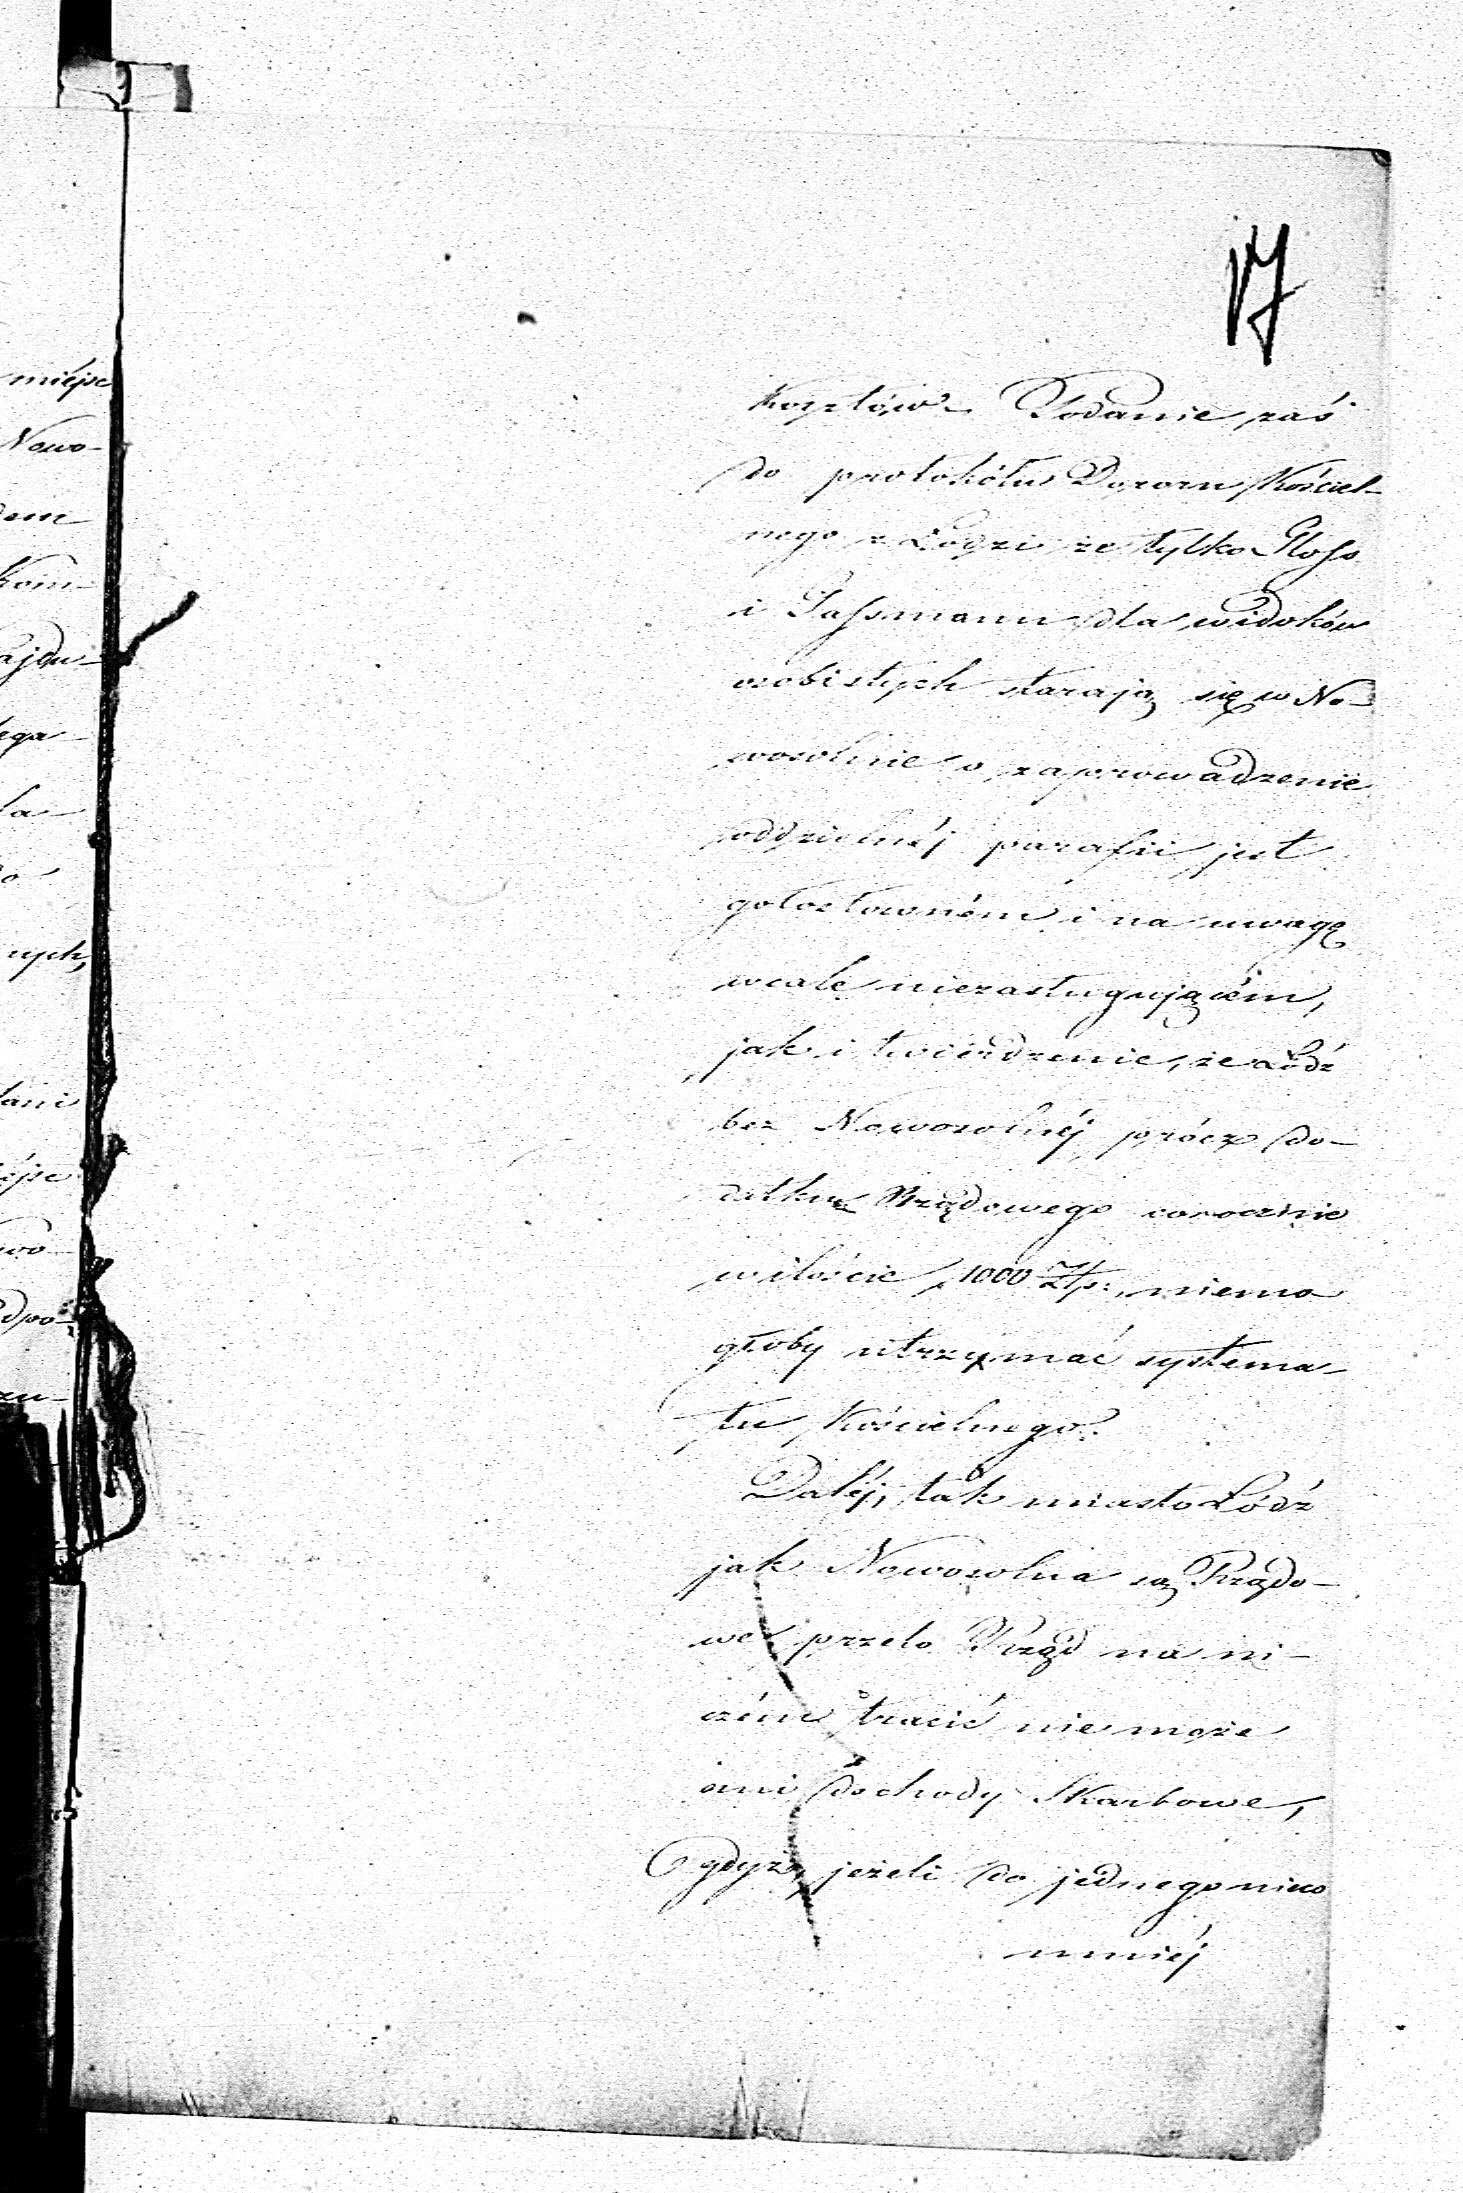 miejsc
Nowo-
dem
kom-
ajdu-
ega-
la-
nych,
tani
ejsc
wo
dpo-
zu-
17
kosztów. Podanie zaś
do protokółu Dozoru Kościel-
nego z Łodzi że tylko Gloss
i Sassmann dla widoków
osobistych starają się w No-
wosolnie o zaprowadzenie
oddzielnéj parafii jest
gołosłowném i na uwagę
wcale niezasługującém,
jak i twierdzenie, że Łódź
bez Nowosolnéj prócz do-
datku Rządowego corocznie
w ilości 1000 Złp., niemo-
głoby utrzymać systema-
tu Kościelnego.
Daléj, tak miasto Łódź
jak Nowosolna są Rządo-
we, przeto Rząd na ni-
czém tracić nie może
ani dochody Skarbowe,
gdyż, jeżeli do jednego nieco
mniéj